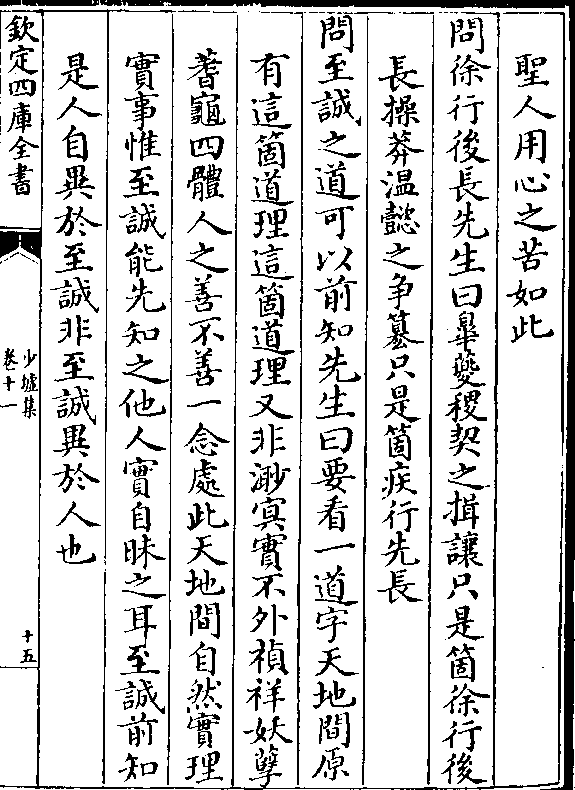 聖人用心之苦如此
問徐行後長先生曰臯䕫稷契之揖讓只是箇徐行後
長操莽温懿之爭篡只是箇疾行先長
問至誠之道可以前知先生曰要看一道字天地間原
有這箇道理這箇道理又非渺冥實不外禎祥妖孽
蓍龜四體人之善不善一念處此天地間自然實理
實事惟至誠能先知之他人實自昧之耳至誠前知
是人自異於至誠非至誠異於人也
欽定四庫全書
少墟集
卷十一
十五